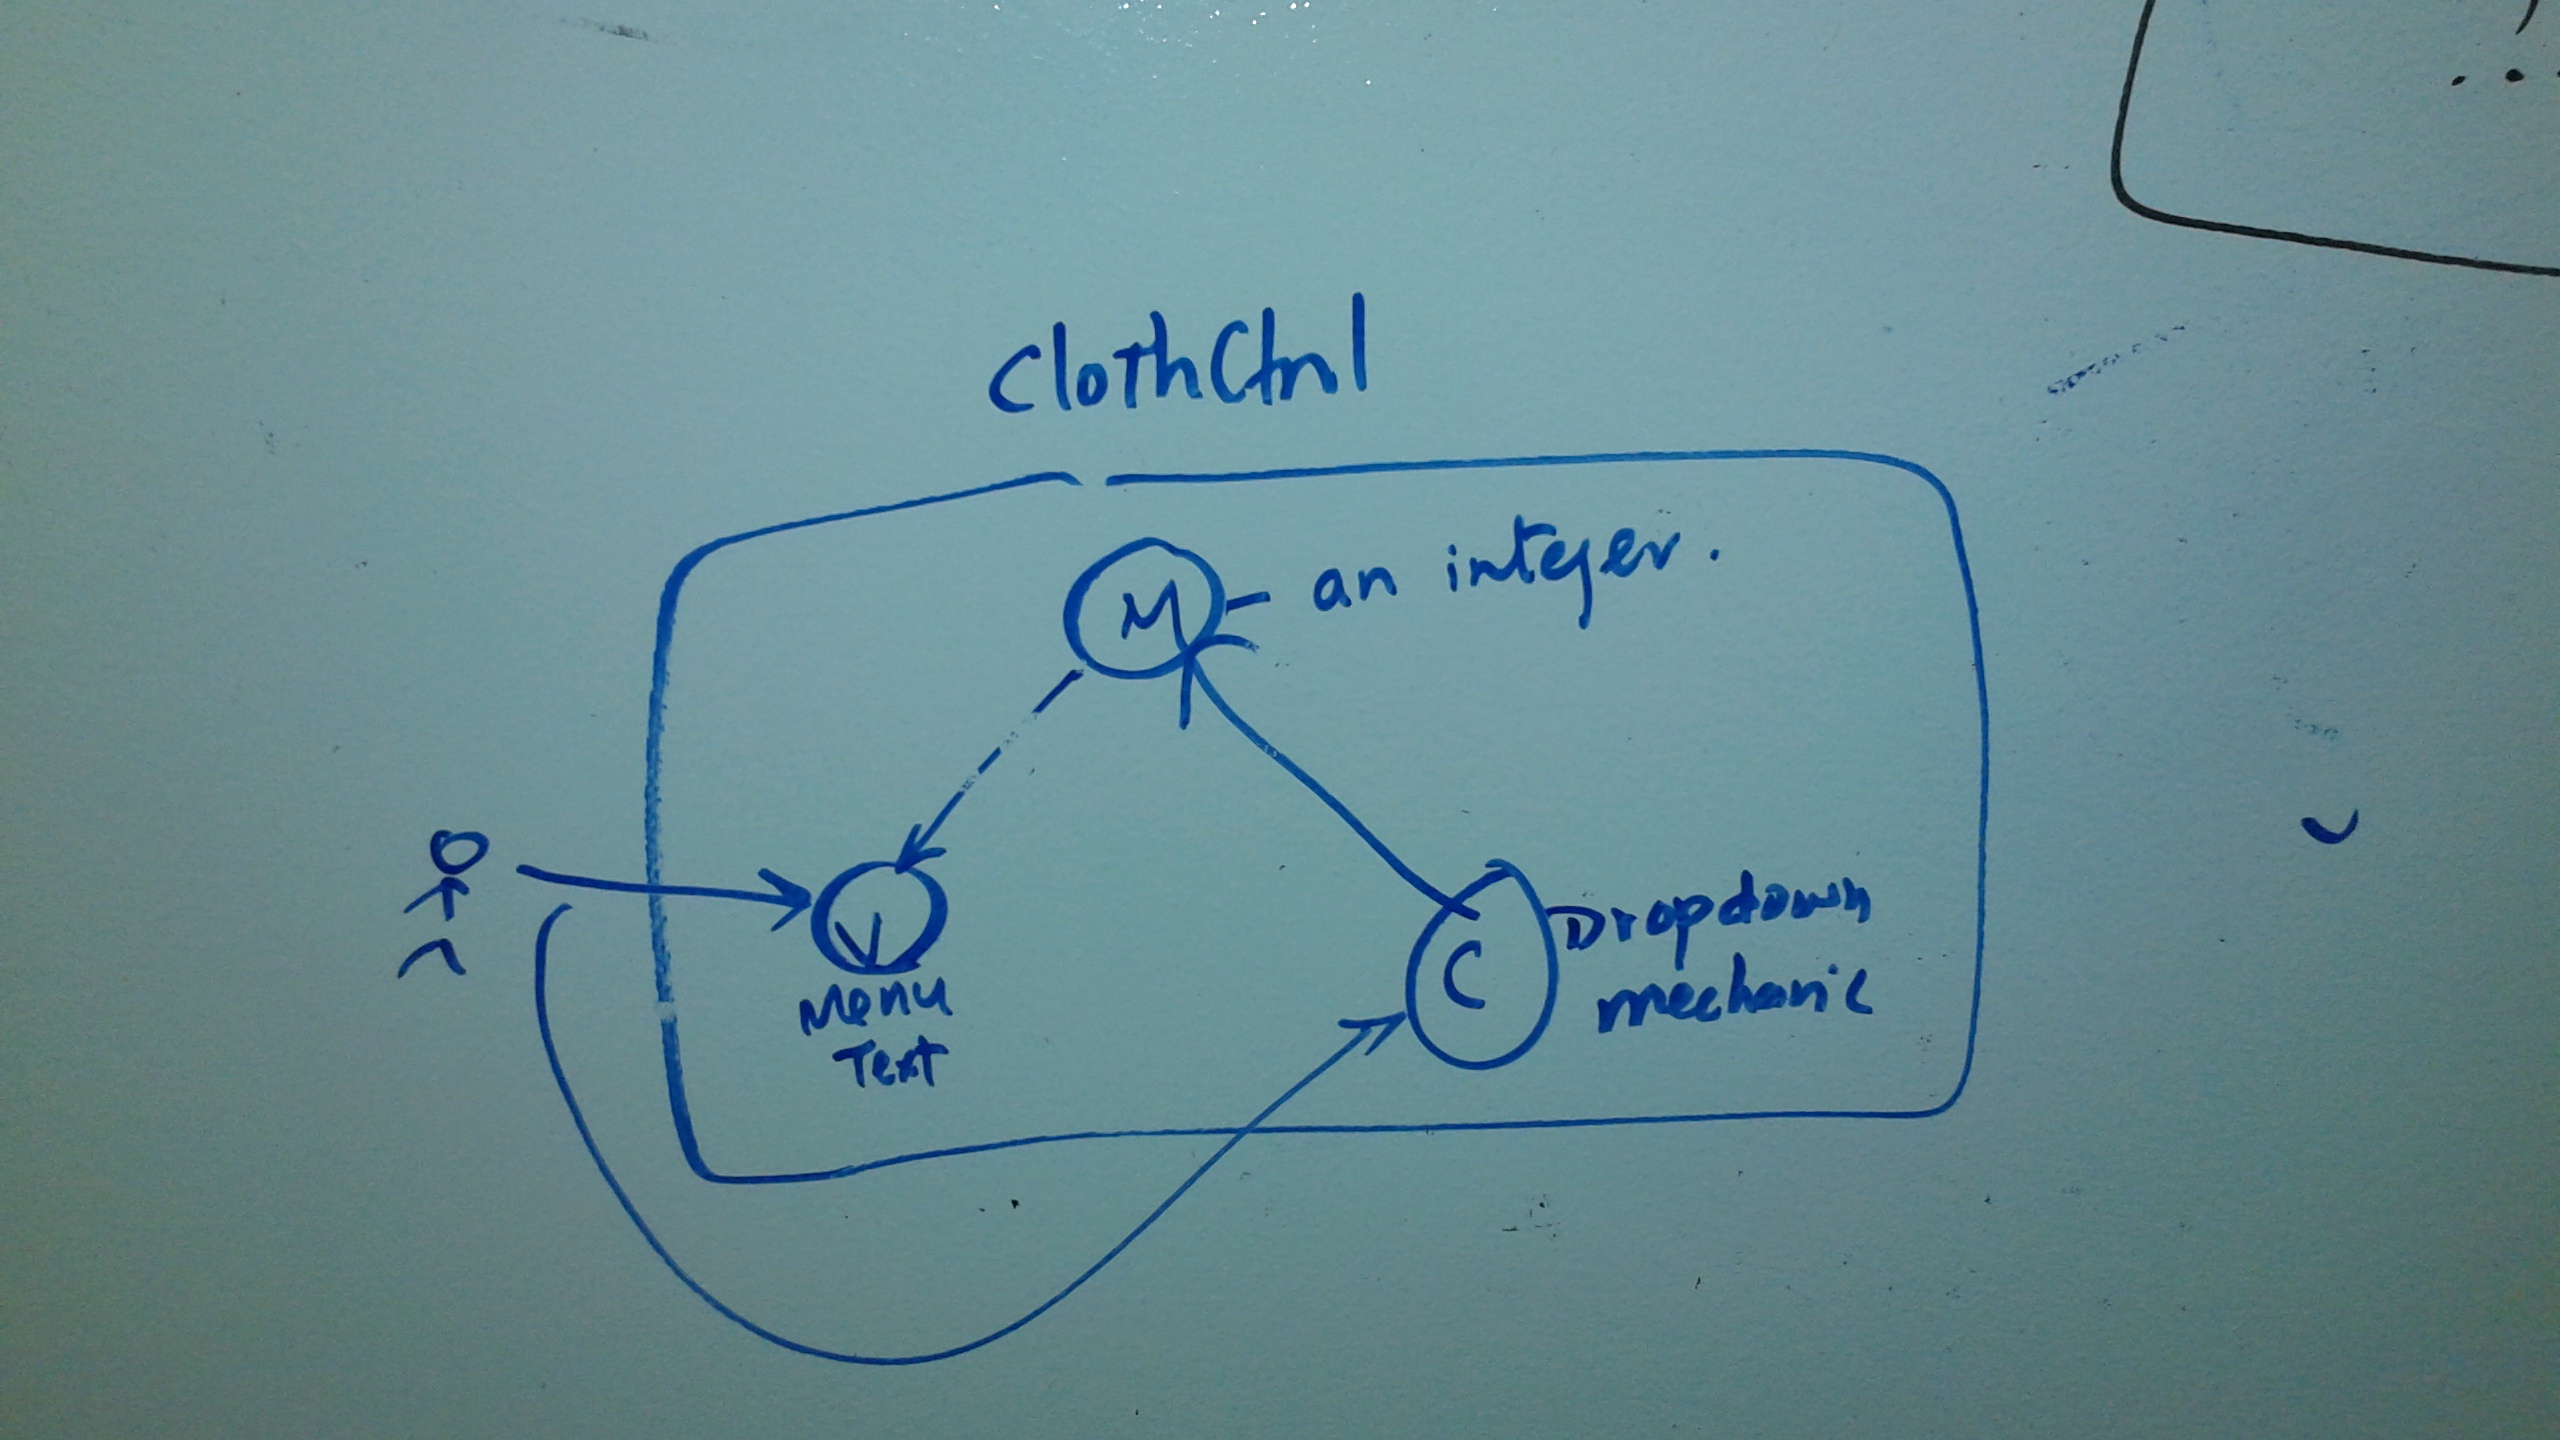 ClothCtrl
M - an integer.
V
Menu
Text
C
Dropdown
mechanic